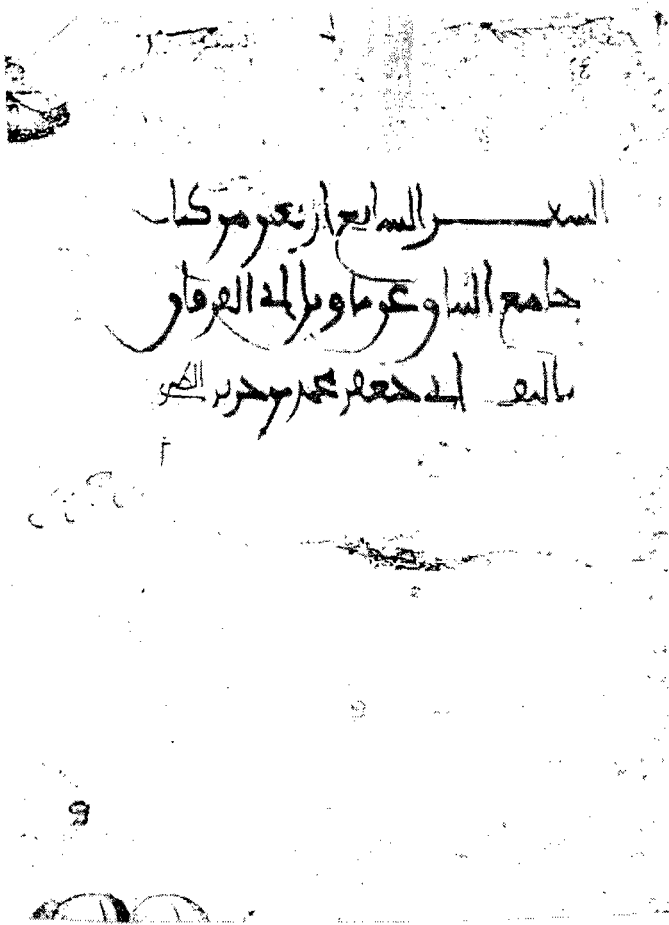 السفر السابع أربعين من كتاب
جامع البيان عن تاويل آي الفرقان
تاليف ابي جعفر محمد بن جرير الطبري